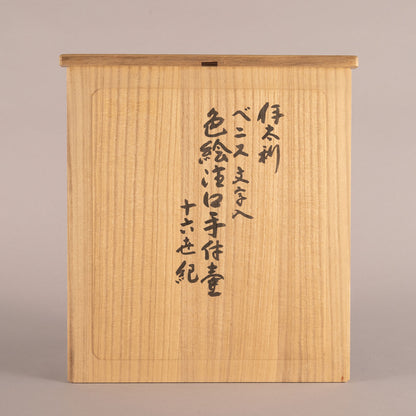 伊太利
ベニス文字入
色絵注口手付壷
十六世紀